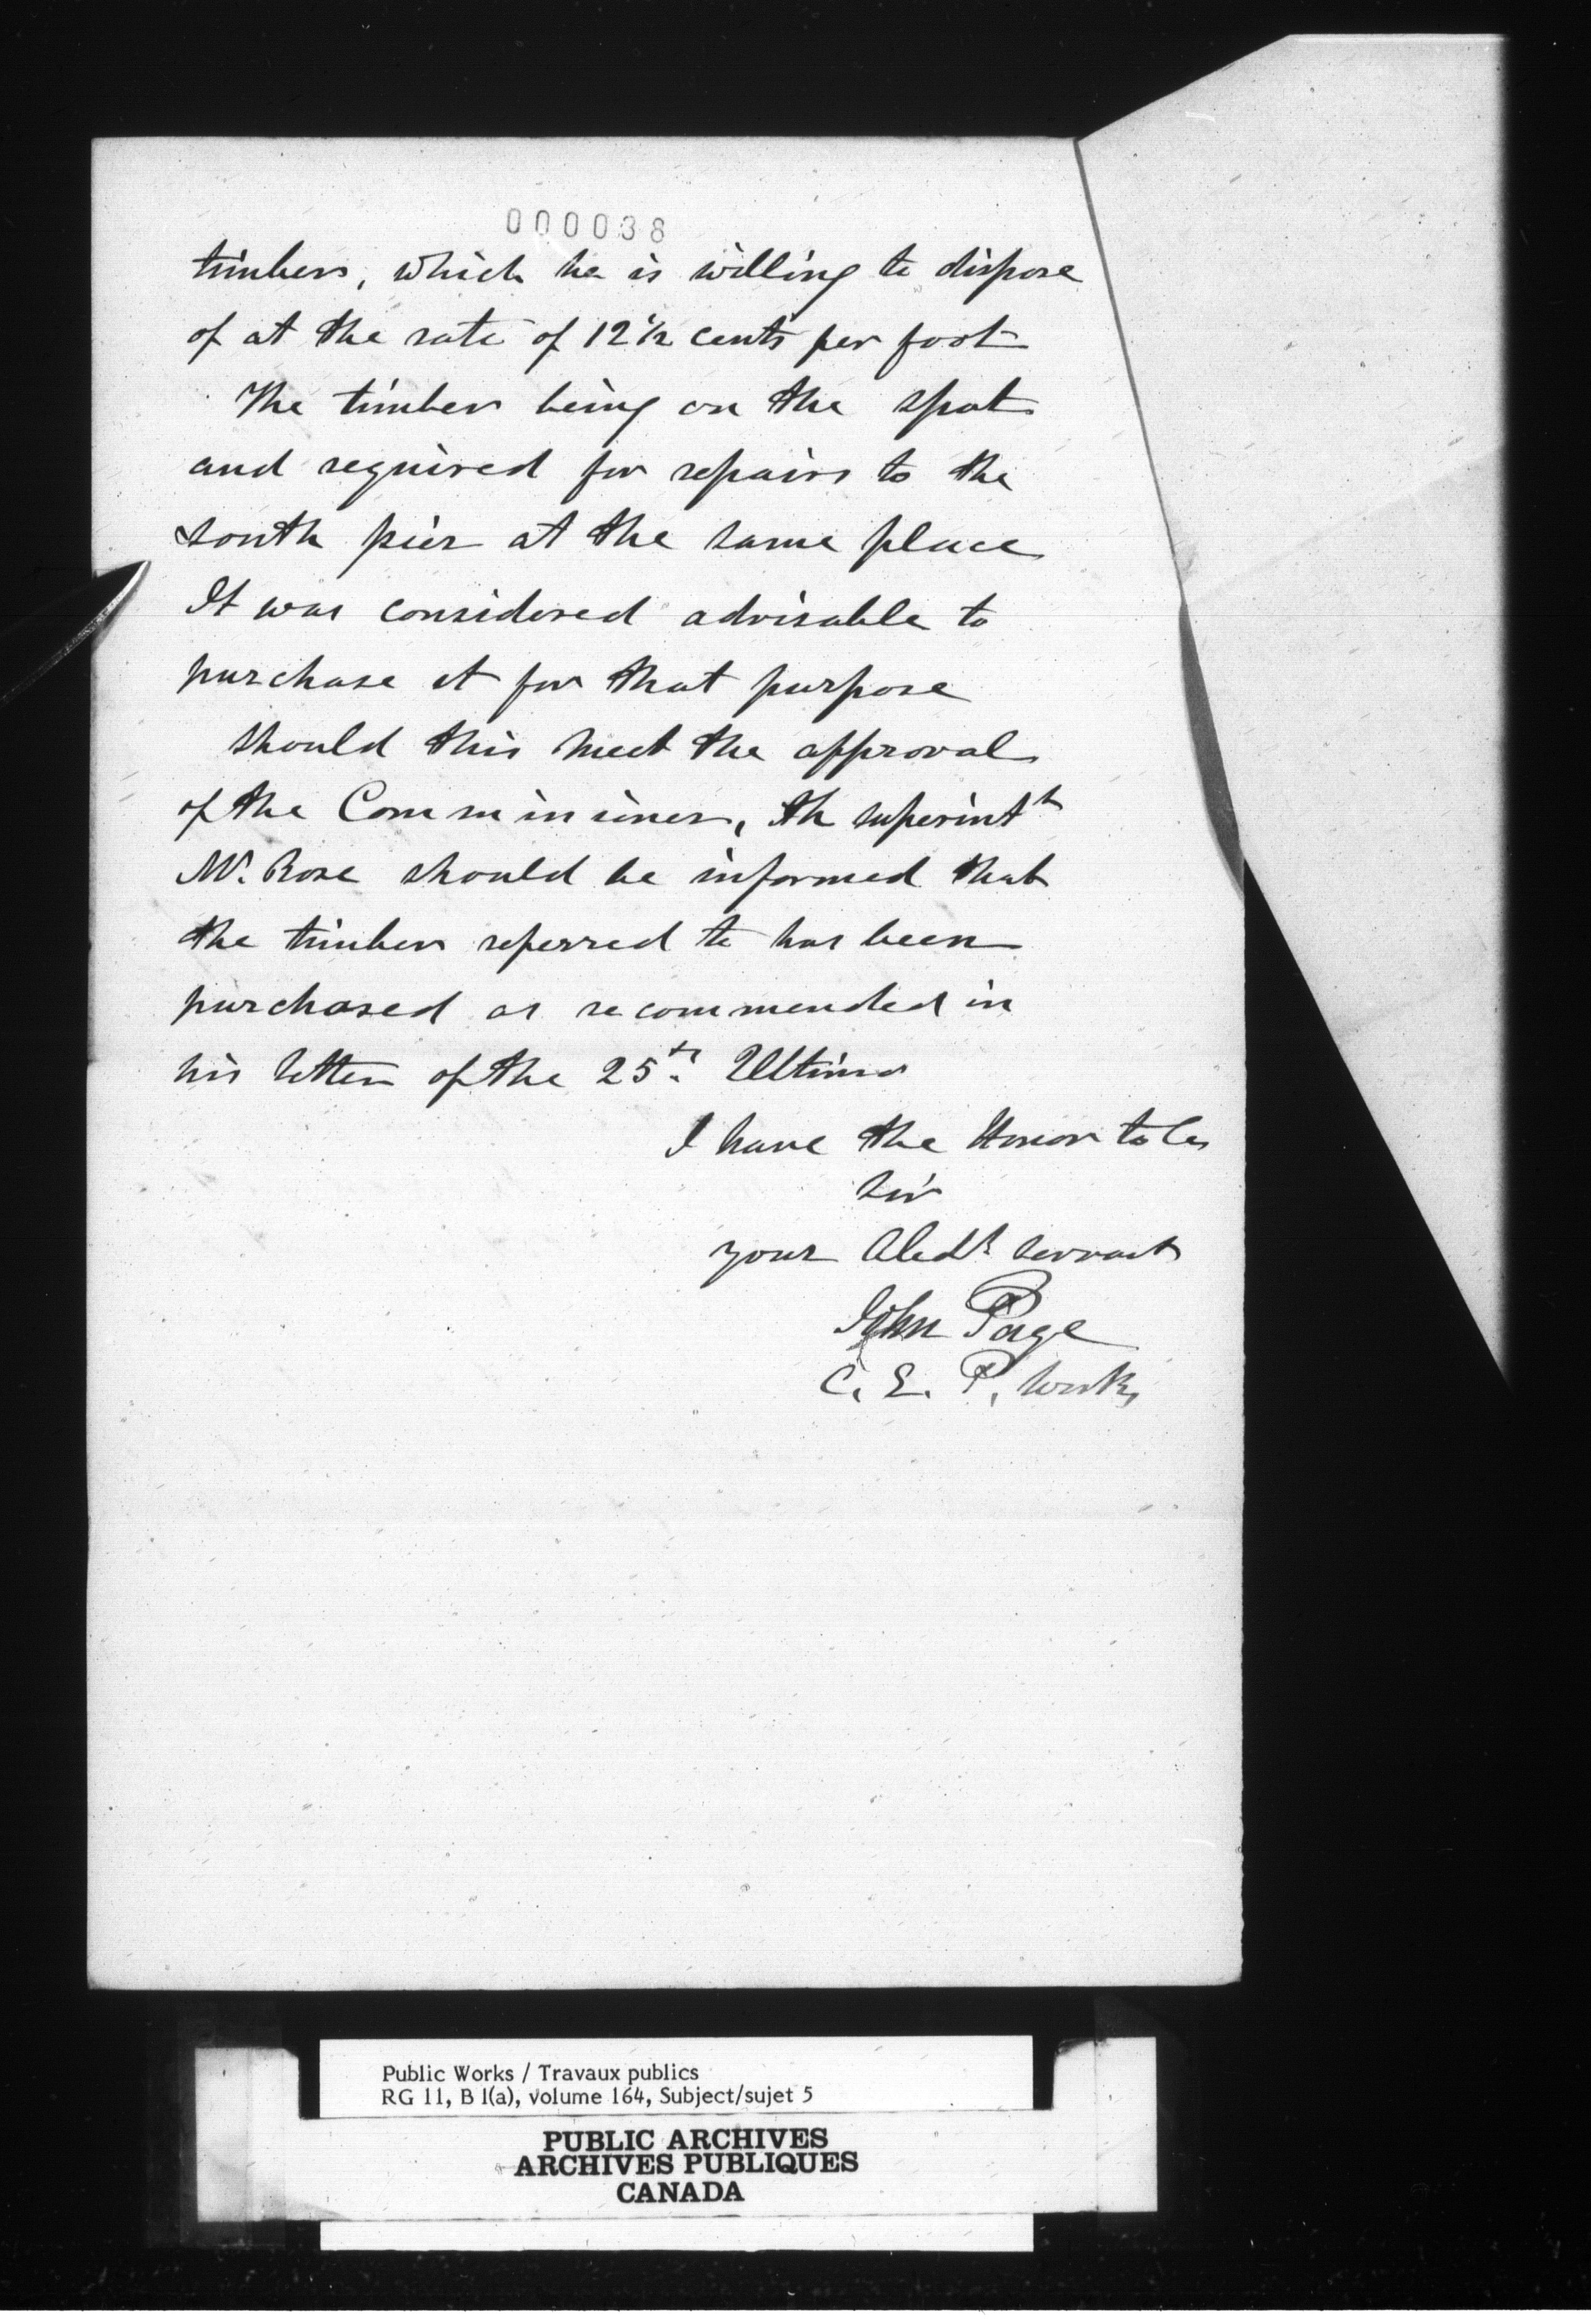 000038
timber, which he is willing to dispose
of at the rate of 12½ cents per foot
The timber being on the spot
and required for repairs to the
south pier at the same place
It was considered advisable to
purchase it for that purpose
should this meet the approval
of the Commissioner, the superintt
Mr. Rose should be informed that
the timber referred to has been
purchased as recommended in
his letter of the 25th. Ultimo
I have the Honor to be
Sir
your Obedt servant
John Page
C. E. P. Works
Public Works / Travaux publics
RG 11, B 1(a), volume 164, Subject/sujet 5
PUBLIC ARCHIVES
ARCHIVES PUBLIQUES
CANADA